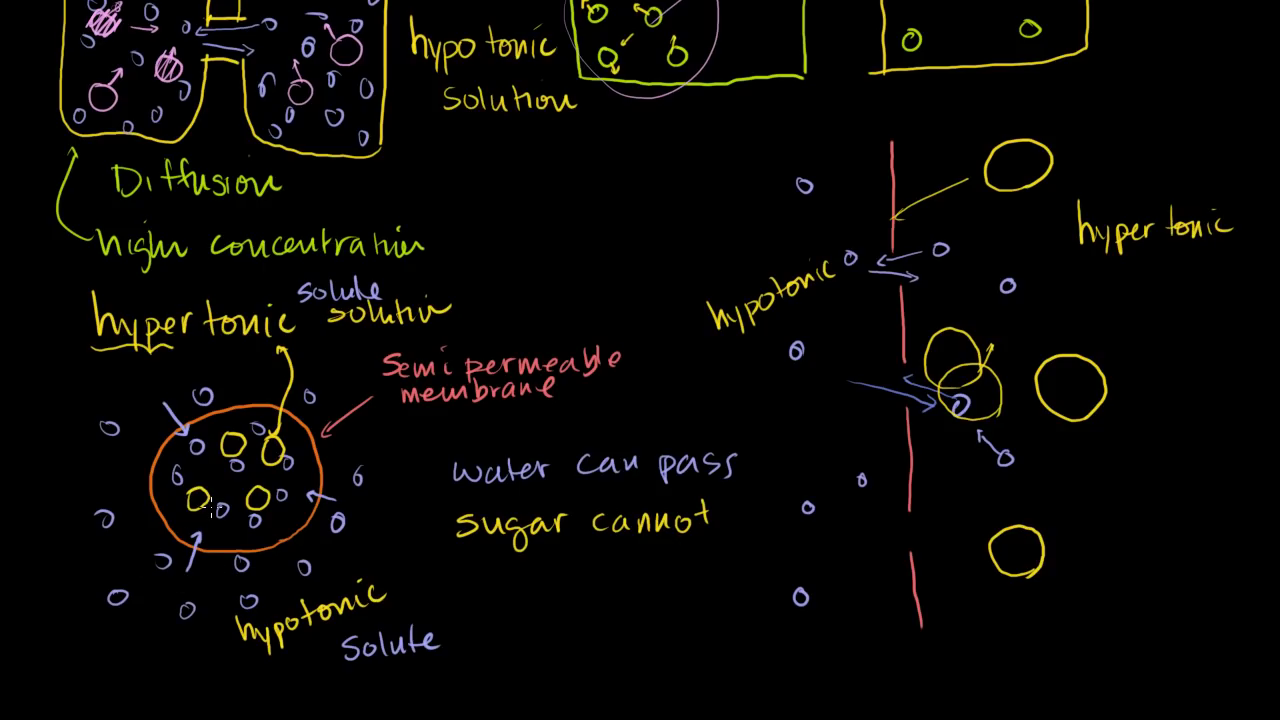 hypotonic
solution
Diffusion
high concentration
solute
hypertonic solution
Semi permeable
membrane
water can pass
sugar cannot
hypotonic
solute
hypotonic
hypertonic